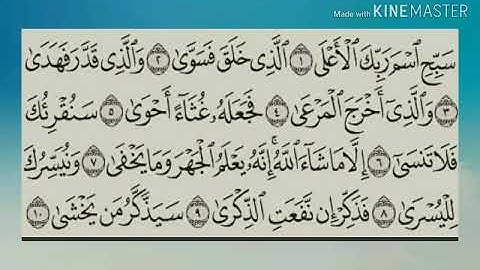 Made with KINEMASTER
سَبِّحِ اسْمَ رَبِّكَ الْأَعْلَى ١ الَّذِي خَلَقَ فَسَوَّىٰ ٢ وَالَّذِي قَدَّرَ فَهَدَىٰ
٣ وَالَّذِي أَخْرَجَ الْمَرْعَىٰ ٤ فَجَعَلَهُ غُثَاءً أَحْوَىٰ ٥ سَنُقْرِئُكَ
فَلَا تَنسَىٰ ٦ إِلَّا مَا شَاءَ اللَّهُ ۚ إِنَّهُ يَعْلَمُ الْجَهْرَ وَمَا يَخْفَىٰ ٧ وَنُيَسِّرُكَ
لِلْيُسْرَىٰ ٨ فَذَكِّرْ إِن نَّفَعَتِ الذِّكْرَىٰ ٩ سَيَذَّكَّرُ مَن يَخْشَىٰ ١٠